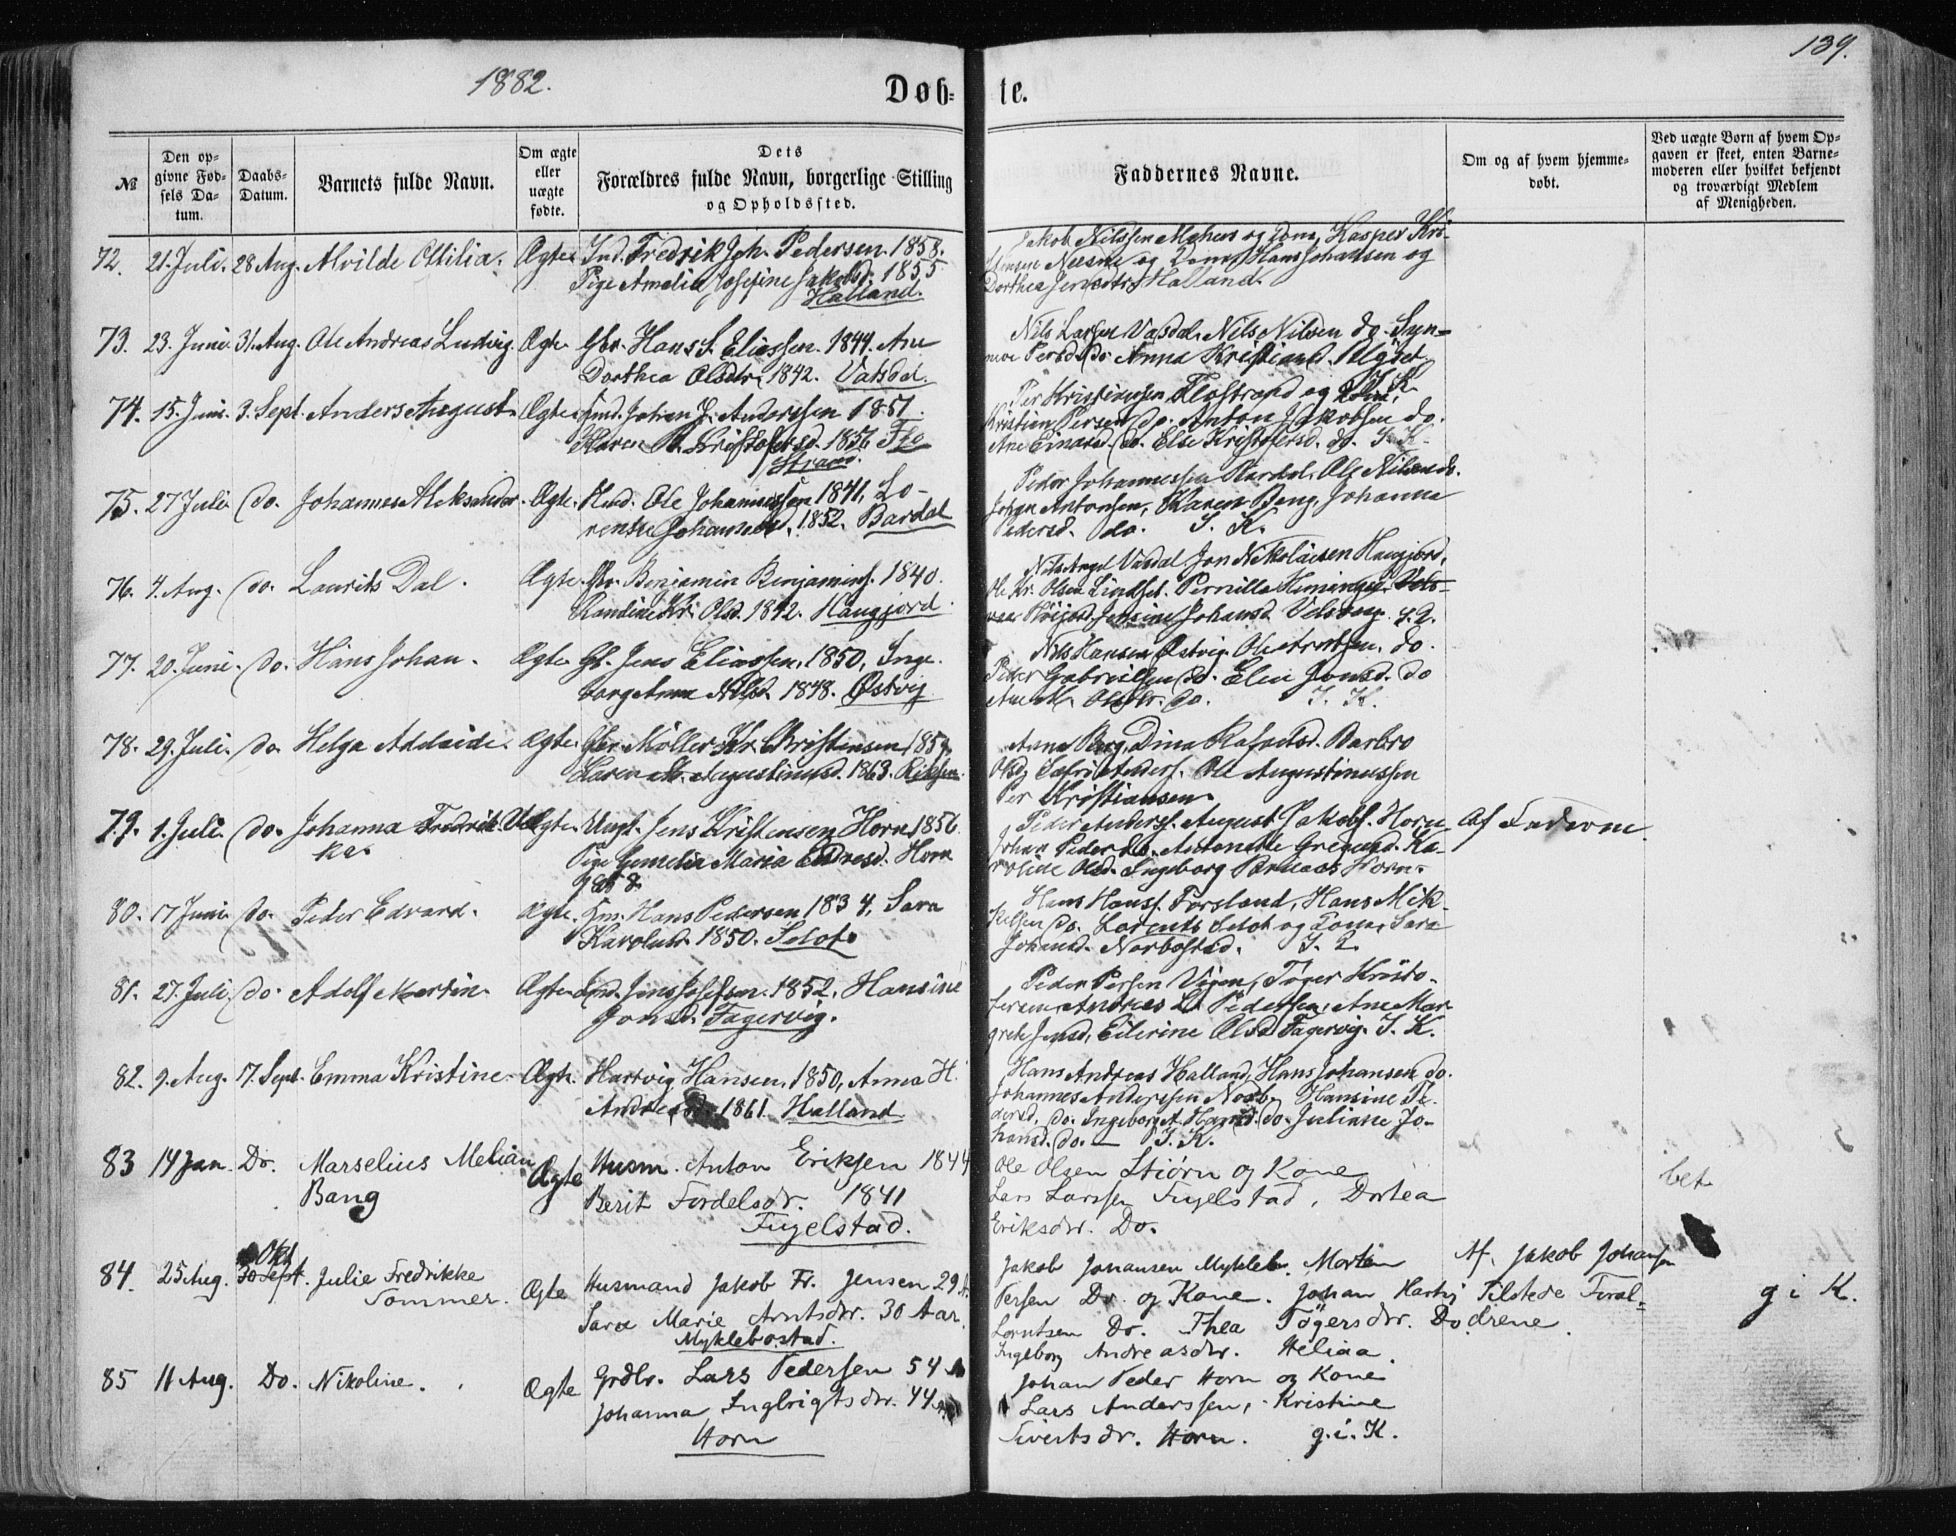 1882.
139.
Døb-
te.
№
Den op-
givne Fød-
sels Da-
tum.
Daabs-
Datum.
Barnets fulde Navn.
Om ægte
eller
uægte
fødte.
Dets
Forældres fulde Navn, borgerlige Stilling
og Opholdssted.
Faddernes Navne.
Om og af hvem hjemme-
døbt.
Ved uægte Børn af hvem Op-
gaven er skeet, enten Barne-
moderen eller hvilket bekjendt
og troværdigt Medlem
af Menigheden.
72. 21. Juli. 28 Aug. Alvilde Ottilia. Ægte Ind. Fredrik Joh. Pedersen. 1858.
Pige Amelia Josefine Jakobsd. 1855
Halland.
Jakob Nilssen og Kona, Kasper
og Kona, Hans Johansen og
Dorthea Jensdtr Halland.
73. 23. Juni 31. Aug. Ole Andreas Ludvig. Ægte Gbr. Hans S. Eliassen. 1844. Ane
Dorthea Olsdtr, 1842. Vatsdal.
Nils Larsen Vasdal. Nils Nilsen do.
Persd. do. Anna Kristiansd.
74. 15. Juni. 3. Sept. Anders August Ægte Johan P. Anderssen 1851.
Karen Kristofersd. 1856 Flo
Strand.
Per Kristiansen Flostrand og Kone.
Kristian Persen do. Anton Jakobsen do.
Ane Einarsd. do. Else Kristofersd. do. I. K.
75. 27 Juli do. Johannes Aleksander. Ægte. Ole Johannessen 1841, Lo-
rentse Johannesd. 1852. Bardal
Peder Johannessen Bardal. Ole Nilsen do.
Johan Antonsen, Karen Bang, Johanna
Pedersd. do. I. K.
76. 4. Aug. do. Laurits Dal. Ægte. Gbr. Benjamin Benjamins. 1840.
Randine Kr. Olsd. 1842. Haugjord
Nils Vasdal Jon Nikolaisen Haugjord,
Ole Kr. Olsen Pernille
Jensine Johansd.
77. 20. Juni. do. Hans Johan. Ægte Gb. Jens Eliassen, 1850, Inge-
borg Anna Nilsd. 1848. Østvig
Nils Hansen Østvig. Ole do.
Peder Gabrielsen do. Elen Jonsd. do
Ane M. Olsdtr. do. I. K.
78. 29. Juli. do. Helga Adelaide. Ægte. Gbr Møller Kr. Christensen 1859.
Karen M. Augustinusd. 1863.
Anna Berg, Dina Barbro
Anders. Ole Augustinussen
Per Kristiansen.
79. 1. Juli do. Johanna Fredrik-
ke.
Uægte. Ungk. Jens Kristensen Horn 1856
Pige Maria Endresd. Horn
1858.
Peder Anders. August Jakobs. Horn
Johan Peder do. Antonette Gregusd. Ka-
roline Olsd. Ingeborg Horn.
Af Faderen
80. 17 Juni do. Peder Edvard. Ægte. Hm. Hans Pedersen 1834, Sara
Karolusd. 1850. Selot.
Hans Hans. Forsland, Hans Mik-
kelsen do. Lorents Selot og Kona, Sara
Johansd. Norbostad.
81. 27. Juli do. Adolf Martin. Ægte Ind. Jens Josefsen. 1852, Hansine
Jonsd. Fagervig.
Peder Persen Vigen, Tøger Kristo-
fersen, Andreas L. Pedersen, Ane Mar-
grete Jensd, Eilerine Olsd Fagervig. I. K.
82. 9. Aug. 17. Sept. Emma Kristine. Ægte. Hartvig Hansen, 1850, Anna H.
Andreasd. 1861. Halland
Hans Andreas Halland, Hans Johansen do.
Johannes Anderssen Hansine Pe-
dersd, do. Ingeborg A. Hansd. do. Juliane Jo-
hansd. do. — I. K.
83 14 Jan. Do. Marselius Melian
Bang
Ægte Husm. Anton Eriksen 1844
Berit Fordelsdr. 1841
Fugelstad.
Ole Olsen Stiørn og Kone
Lars Larssen Fugelstad, Dortea
Eriksdr. Do.
bet
84. 25 Aug. 30 Sept.
Okt
Julie Fredrikke
Sommer.
Ægte Husmand Jakob Fr. Jensen 29 A.
Sara Marie Arntsdr. 30 Aar.
Myklebostad.
Jakob Johansen Mykleb. Morten
Persen Do. og Kone. Johan Hartvig
Lorntsen Do. Thea Tøgersdr. Do.
Ingeborg Andreasdr. Heliaa.
Af. Jakob Johansen
Tilstede Foræl-
drene.
g i K.
85 11 Aug. Do. Nikoline. Ægte Grdbr. Lars Pedersen 54 A
Johanna Ingbrigtsdr. 44 A
Horn
Johan Peder Horn og Kone
Lars Anderssen, Kristine
Sivertsdr. Horn. g. i. K.